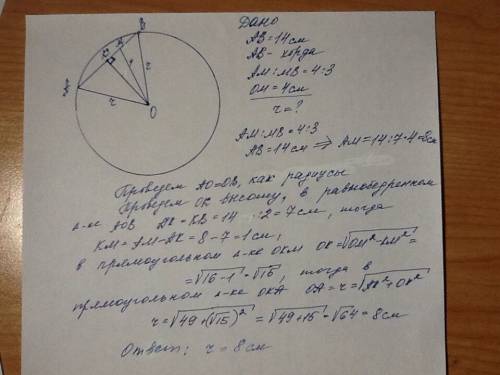 Дано
B
K M
AB=14см
AB- хорда
AM:MB=4:3
r
OM=4см
r=?
A
r
O
AM:MB=4:3
AB=14см ⟹ AM=14:7·4=8см
Проведем AO=OB, как радиусы
Проведем OK высоту, в равнобедренном
Δ-ке AOB AK=KB=14:2=7см, тогда
KM=AM-AK=8-7=1см,
в прямоугольном Δ-ке OKM OK=√OM²-KM²=
=√16-1=√15, тогда в
прямоугольном Δ-ке OKA OA=r=√AK²+OK²
r=√49+(√15)²=√49+15=√64=8см
Ответ: r=8см